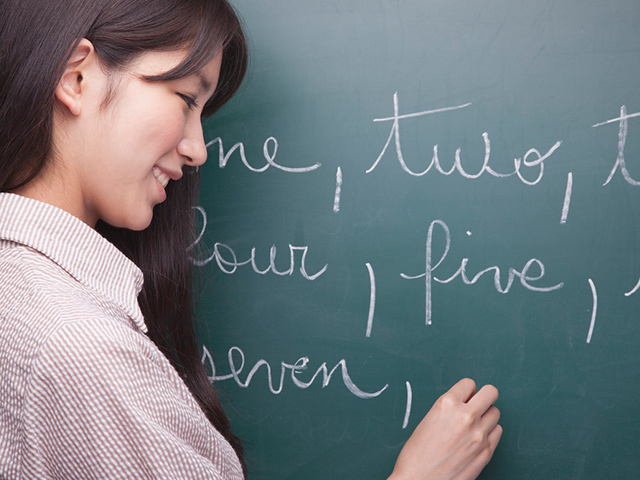 one, two, t
four, five,
seven,